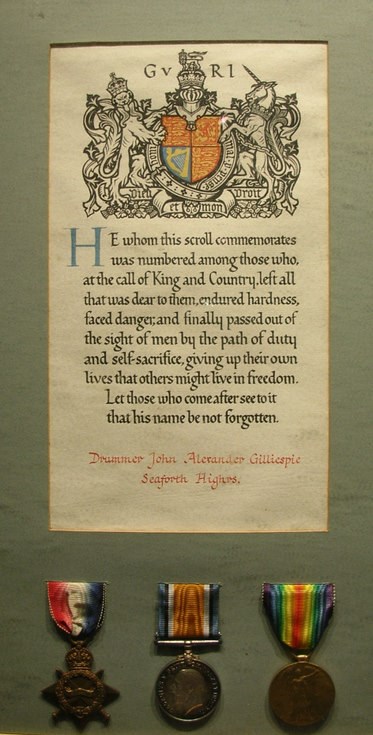 GvRI
Dieu et mon Droit
HE whom this scroll commemorates
was numbered among those who,
at the call of King and Country, left all
that was dear to them, endured hardness,
faced danger, and finally passed out of
the sight of men by the path of duty
and self-sacrifice, giving up their own
lives that others might live in freedom.
Let those who come after see to it
that his name be not forgotten.
Drummer John Alexander Gillespie
Seaforth Highrs.